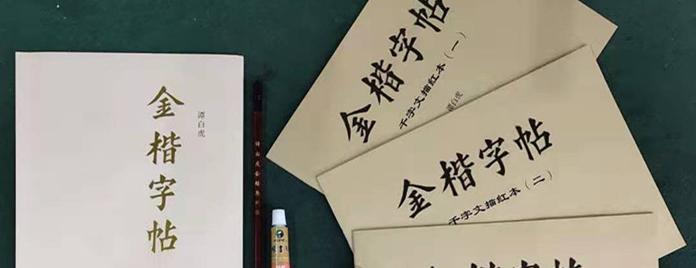 金楷字帖
谭白虎
金楷字帖
千字文描红本（一）
谭白虎
金楷字帖
千字文描红本（二）